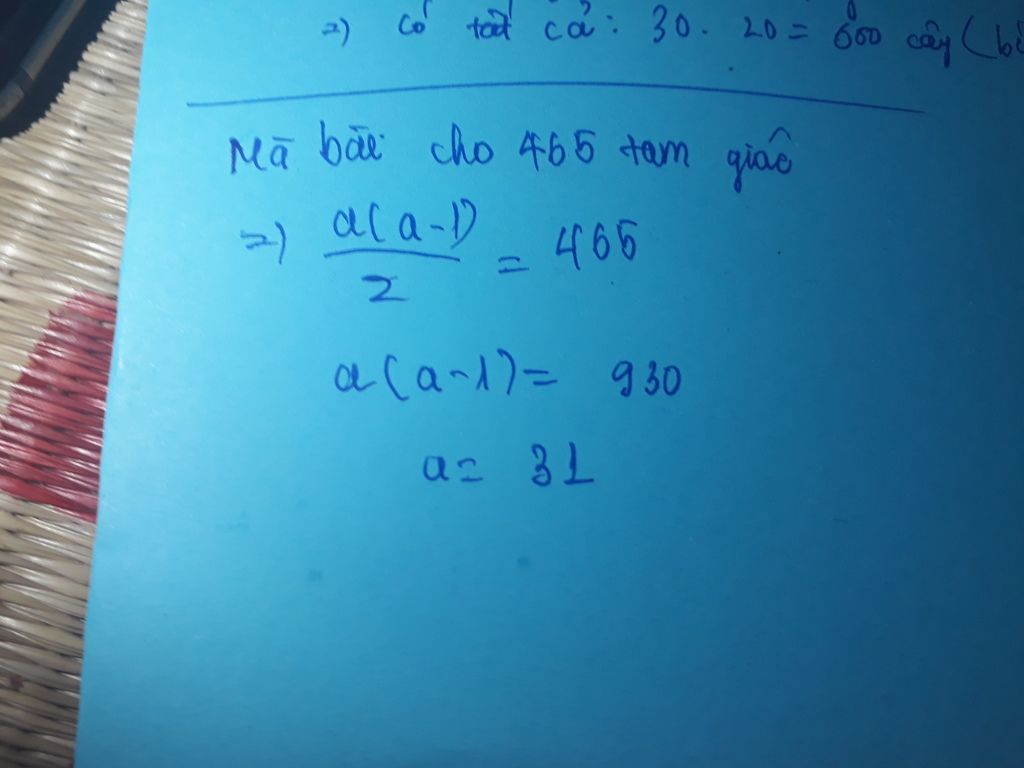 =) Có tất cả: 30. 20 = 600 cây (
Mà bài cho 465 tam giác
=) a(a-1)/2 = 465
a(a-1) = 930
a = 31